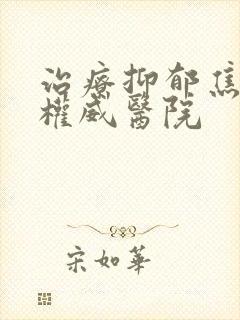 治療抑郁焦
權威醫院
宋如華